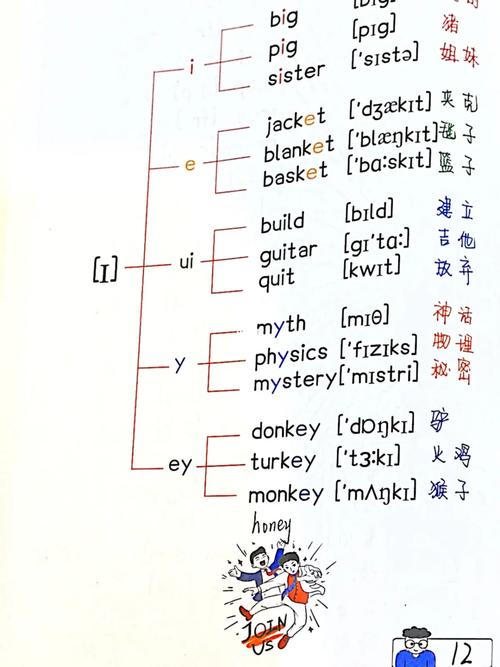 big
i pig [pɪg] 猪
sister ['sɪstə] 姐妹
jacket ['dʒækɪt] 夹克
e blanket ['blæŋkɪt] 毯子
basket ['bɑ:skɪt] 篮子
build [bɪld] 建立
[ɪ] ui guitar [gɪ'tɑ:] 吉他
quit [kwɪt] 放弃
myth [mɪθ] 神话
y physics ['fɪzɪks] 物理
mystery ['mɪstri] 秘密
donkey ['dɒŋkɪ] 驴
ey turkey ['tɜ:kɪ] 火鸡
monkey ['mʌŋkɪ] 猴子
honey
JOIN
US
12